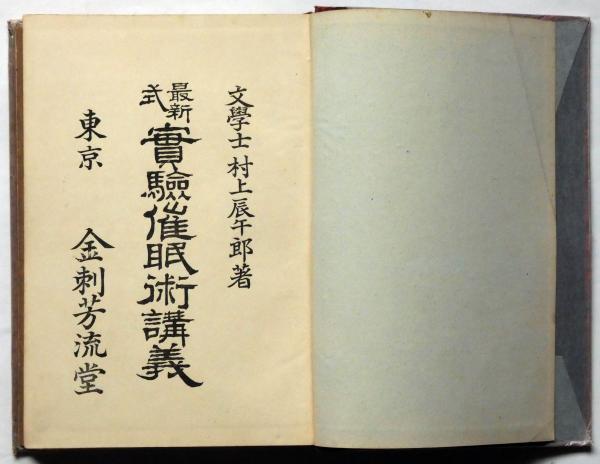 文學士 村上辰午郎著
最新式 實驗催眠術講義
東京 金刺芳流堂